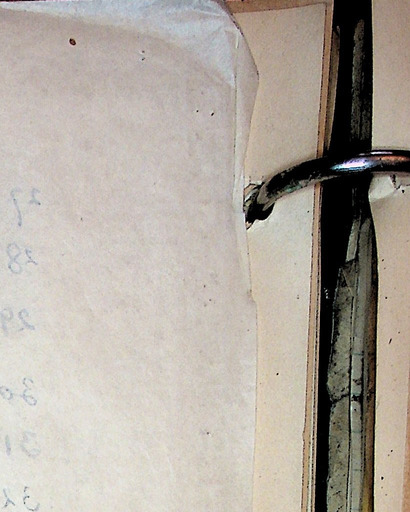 27
28
29
30
31
32